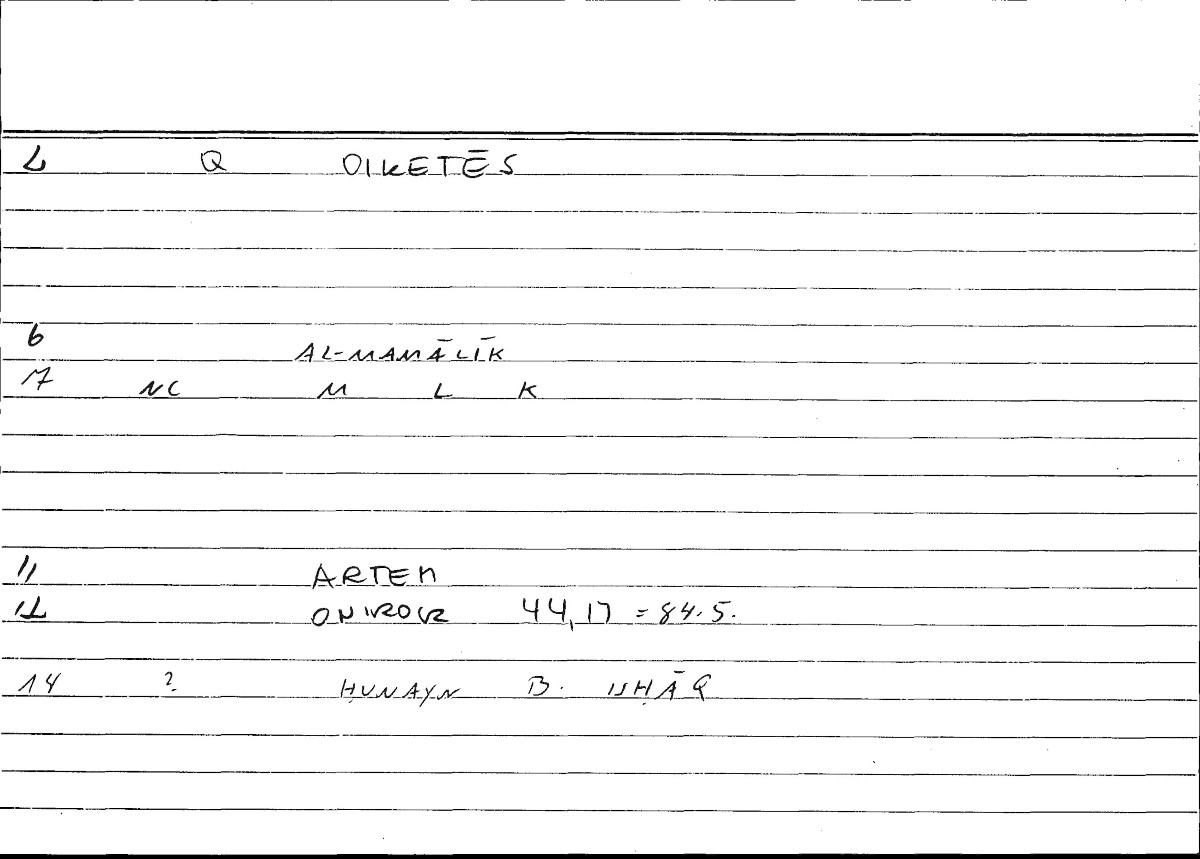 2 Q OIKETĒS
6
AL-MAMĀLĪK
17 NC M L K
11 ARTEM
12 ONIROCR 44,17 = 84.5.
14 ? ḤUNAYN B. ISḤĀQ